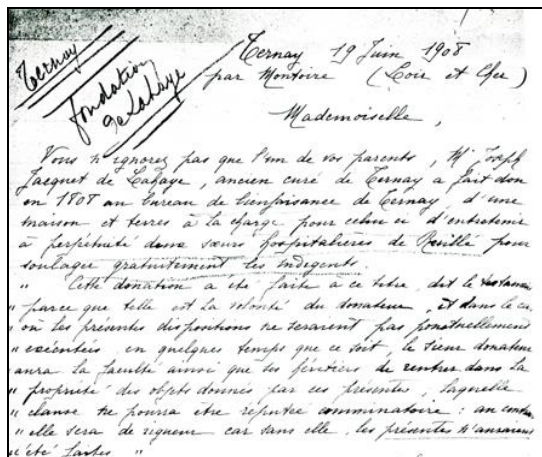 Ternay
fondation
de Lahaye
Ternay 19 Juin 1908
par Montoire (Loir et Cher)
Mademoiselle,
Vous n'ignorez pas que l'un de vos parents, Mr Joseph
Jacquet de Lahaye, ancien curé de Ternay a fait don
en 1808 au bureau de bienfaisance de Ternay, d'une
maison et terres à la charge pour celui ci d'entretenir
à perpétuité deux sœurs hospitalières de Ruillé pour
soulager gratuitement les indigents.
" Cette donation a été faite à ce titre, dit le
" parce que telle est la volonté du donateur, et dans le ca
" ou les présentes dispositions ne seraient pas ponctuellement
" exécutées, en quelques temps que ce soit, le sieur donateur
" aura la faculté ainsi que ses héritiers de rentrer dans la
" propriété des objets donnés par ces présentes, laquelle
" clause ne pourra etre reputée comminatoire : au contra
" elle sera de rigueur car sans elle, les présentes n'auraient
" été faites "